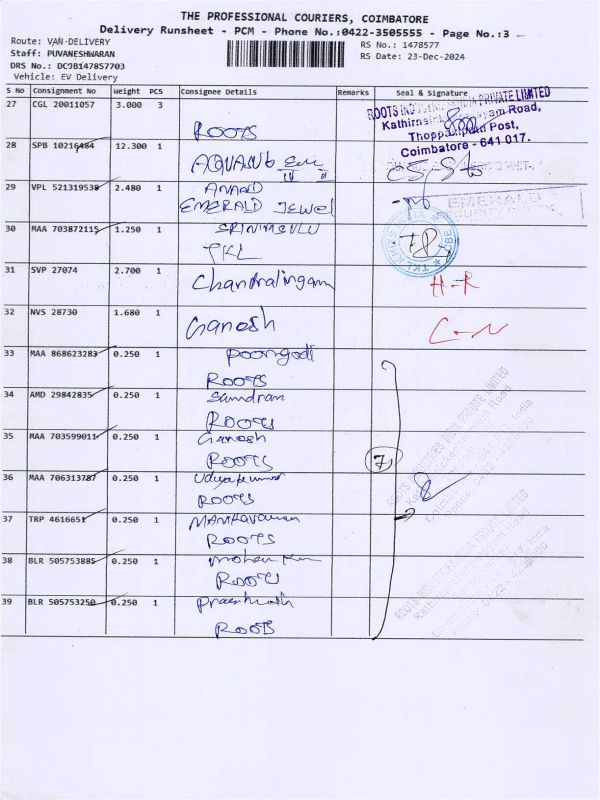 THE PROFESSIONAL COURIERS, COIMBATORE
Delivery Runsheet - PCM - Phone No.:0422-3505555 - Page No.:3
Route: VAN-DELIVERY
Staff: PUVANESHWARAN
DRS No.: DCJB147857703
Vehicle: EV Delivery
RS No.: 1478577
RS Date: 23-Dec-2024
S No Consignment No Weight PCS Consignee Details Remarks Seal & Signature
27 CGL 20011057 3.000 3
ROOTS
ROOTS INDUSTRIES INDIA PRIVATE LIMITED
Kathirnaickenpalayam Road,
Thoppampatti Post,
Coimbatore - 641 017.
28 SPB 10216484 12.300 1
AQUASUB
29 VPL 521319538 2.480 1 ANAND
EMERALD JEWEL
EMERALD
30 MAA 703872115 1.250 1 SRINIVASULU
TKL
31 SVP 27074 2.700 1
Chandralingam
H-R
32 NVS 28730 1.680 1
Ganesh
C-N
33 MAA 868623283 0.250 1 Poongodi
ROOTS
34 AMD 29842835 0.250 1
ROOTS
35 MAA 703599011 0.250 1 Ganesh
ROOTS
7
36 MAA 706313787 0.250 1 Udyakumar
ROOTS
37 TRP 4616651 0.250 1
ROOTS
38 BLR 505753885 0.250 1
ROOTS
39 BLR 505753250 0.250 1
ROOTS